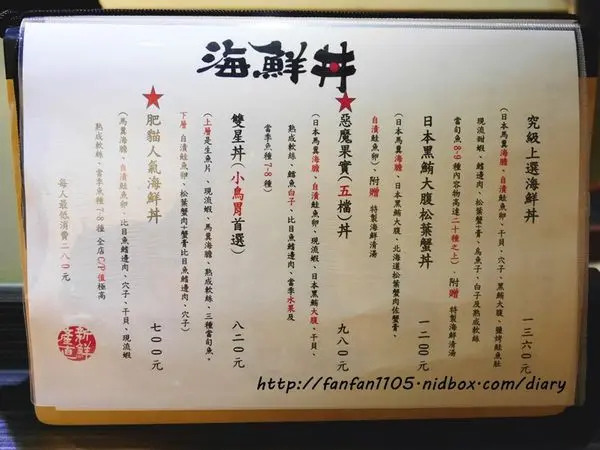 海鮮丼
究級上選海鮮丼 一三六0元
(日本馬冀海膽、自漬鮭魚卵、干貝、穴子、黑鮪大腹、鹽烤鮭魚肚
現流甜蝦、鰭邊肉、松葉蟹+膏、烏魚子、白子及熟成軟絲
當旬魚8-9種內容物高達二十種之上)、附贈 特製海鮮清湯
日本黑鮪大腹松葉蟹丼 一二00元
(日本馬冀海膽、日本黑鮪大腹、北海道松葉蟹肉佐蟹膏、
自漬鮭魚卵)、附贈 特製海鮮清湯
惡魔果實(五檔)丼 九八0元
(日本馬冀海膽、自漬鮭魚卵、現流蝦、日本黑鮪大腹、干貝、
熟成軟絲、鱈魚白子、比目魚鰭邊肉、當季水果及
當季魚種7-8種)
雙星丼(小鳥胃首選) 八二0元
(上層是生魚片、現流蝦、馬冀海膽、熟成軟絲、三種當旬魚。
下層 自漬鮭魚卵、松葉蟹肉+蟹膏比目魚鰭邊肉、穴子)
肥貓人氣海鮮丼 七00元
(馬冀海膽、自漬鮭魚卵、比目魚鰭邊肉、穴子、干貝、現流蝦
熟成軟絲、當季魚種7-8種 全店CP值極高
每人最低消費二八0元
新鮮
產直
http://fanfan1105.nidbox.com/diary